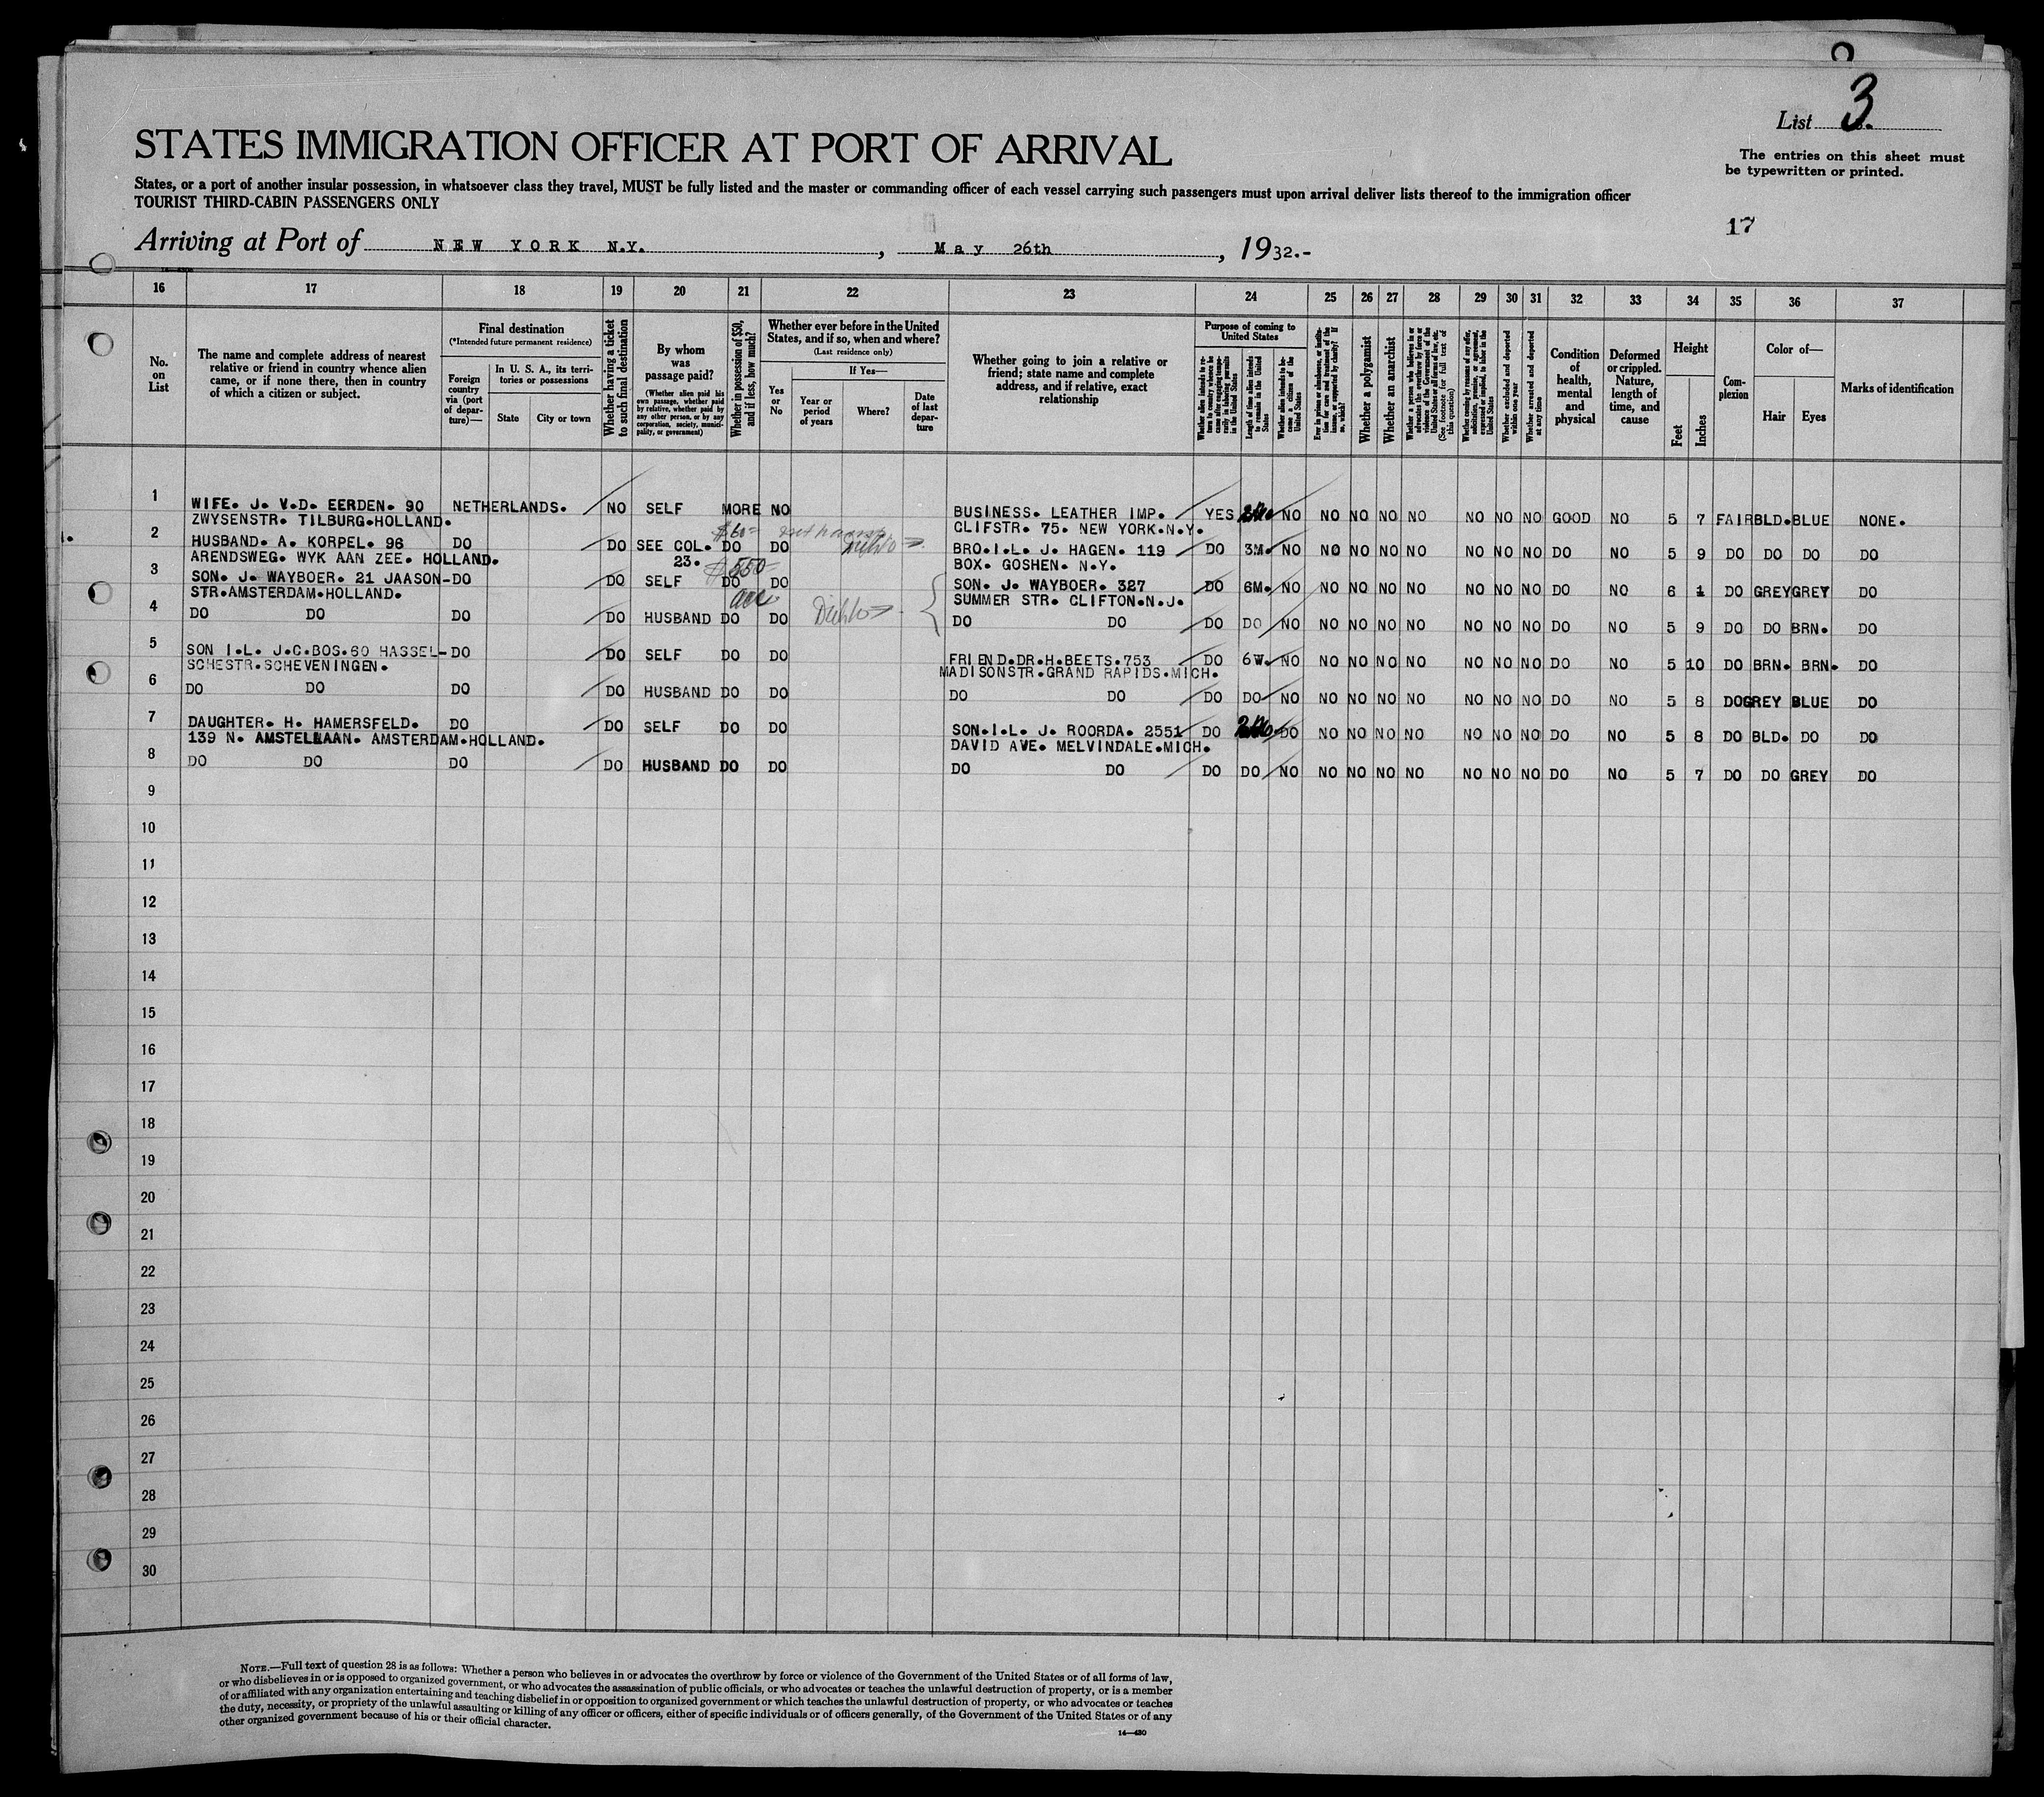 List 3.
STATES IMMIGRATION OFFICER AT PORT OF ARRIVAL
The entries on this sheet must
be typewritten or printed.
States, or a port of another insular possession, in whatsoever class they travel, MUST be fully listed and the master or commanding officer of each vessel carrying such passengers must upon arrival deliver lists thereof to the immigration officer
TOURIST THIRD-CABIN PASSENGERS ONLY
17
Arriving at Port of NEW YORK N.Y., May 26th, 1932.-
16 17 18 19 20 21 22 23 24 25 26 27 28 29 30 31 32 33 34 35 36 37
No.
on
List
The name and complete address of nearest
relative or friend in country whence alien
came, or if none there, then in country
of which a citizen or subject.
Final destination
(*Intended future permanent residence)
Foreign
country
via (port
of depar-
ture)—
In U. S. A., its terri-
tories or possessions
State
City or town
Whether having a ticket
to such final destination
By whom
was
passage paid?
(Whether alien paid his
own passage, whether paid
by relative, whether paid by
any other person, or by any
corporation, society, munici-
pality, or government)
Whether in possession of $50,
and if less, how much?
Whether ever before in the United
States, and if so, when and where?
(Last residence only)
Yes
or
No
If Yes—
Year or
period
of years
Where?
Date
of last
depar-
ture
Whether going to join a relative or
friend; state name and complete
address, and if relative, exact
relationship
Purpose of coming to
United States
Whether alien intends to re-
turn to country whence he
came after engaging tempo-
rarily in laboring pursuits
in the United States
Length of time alien intends
to remain in the United
States
Whether alien intends to be-
come a citizen of the
United States
Ever in prison or almshouse, or institu-
tion for care and treatment of the
insane, or supported by charity? If
so, which?
Whether a polygamist
Whether an anarchist
Whether a person who believes in or
advocates the overthrow by force or
violence of the Government of the
United States or all forms of law, etc.
(See footnote for full text of
this question)
Whether coming by reason of any offer,
solicitation, promise, or agreement,
expressed or implied, to labor in the
United States
Whether excluded and deported
within one year
Whether arrested and deported
at any time
Condition
of
health,
mental
and
physical
Deformed
or crippled.
Nature,
length of
time, and
cause
Height
Feet
Inches
Com-
plexion
Color of—
Hair
Eyes
Marks of identification
1 WIFE. J. V.D. EERDEN. 90 NETHERLANDS. NO SELF MORE NO BUSINESS. LEATHER IMP. YES NO NO NO NO NO NO NO NO GOOD NO 5 7 FAIR BLD. BLUE NONE.
ZWYSENSTR. TILBURG.HOLLAND. CLIFSTR. 75. NEW YORK.N.Y.
$60=
2 HUSBAND. A. KORPEL. 96 DO DO SEE COL. DO DO BRO.I.L. J. HAGEN. 119 DO 3M. NO NO NO NO NO NO NO NO DO NO 5 9 DO DO DO DO
ARENDSWEG. WYK AAN ZEE. HOLLAND. 23. BOX. GOSHEN. N.Y.
$550
3 SON. J. WAYBOER. 21 JAASON- DO DO SELF DO DO SON. J. WAYBOER. 327 DO 6M. NO NO NO NO NO NO NO NO DO NO 6 1 DO GREY GREY DO
STR.AMSTERDAM.HOLLAND. SUMMER STR. CLIFTON.N.J.
4 DO DO DO DO HUSBAND DO DO DO DO DO DO NO NO NO NO NO NO NO NO DO NO 5 9 DO DO BRN. DO
5 SON I.L. J.C.BOS.60 HASSEL- DO DO SELF DO DO FRIEND.DR.H.BEETS.753 DO 6W. NO NO NO NO NO NO NO NO DO NO 5 10 DO BRN. BRN. DO
SCHESTR.SCHEVENINGEN. MADISONSTR.GRAND RAPIDS.MICH.
6 DO DO DO DO HUSBAND DO DO DO DO DO DO NO NO NO NO NO NO NO NO DO NO 5 8 DO GREY BLUE DO
7 DAUGHTER. H. HAMERSFELD. DO DO SELF DO DO SON.I.L. J. ROORDA. 2551 DO DO NO NO NO NO NO NO NO DO NO 5 8 DO BLD. DO DO
139 N. AMSTELLAAN. AMSTERDAM.HOLLAND. DAVID AVE. MELVINDALE.MICH.
8 DO DO DO DO HUSBAND DO DO DO DO DO DO NO NO NO NO NO NO NO NO DO NO 5 7 DO DO GREY DO
9
10
11
12
13
14
15
16
17
18
19
20
21
22
23
24
25
26
27
28
29
30
NOTE.—Full text of question 28 is as follows: Whether a person who believes in or advocates the overthrow by force or violence of the Government of the United States or of all forms of law,
or who disbelieves in or is opposed to organized government, or who advocates the assassination of public officials, or who advocates or teaches the unlawful destruction of property, or is a member
of or affiliated with any organization entertaining and teaching disbelief in or opposition to organized government or which teaches the unlawful destruction of property, or who advocates or teaches
the duty, necessity, or propriety of the unlawful assaulting or killing of any officer or officers, either of specific individuals or of officers generally, of the Government of the United States or of any
other organized government because of his or their official character.
14—430